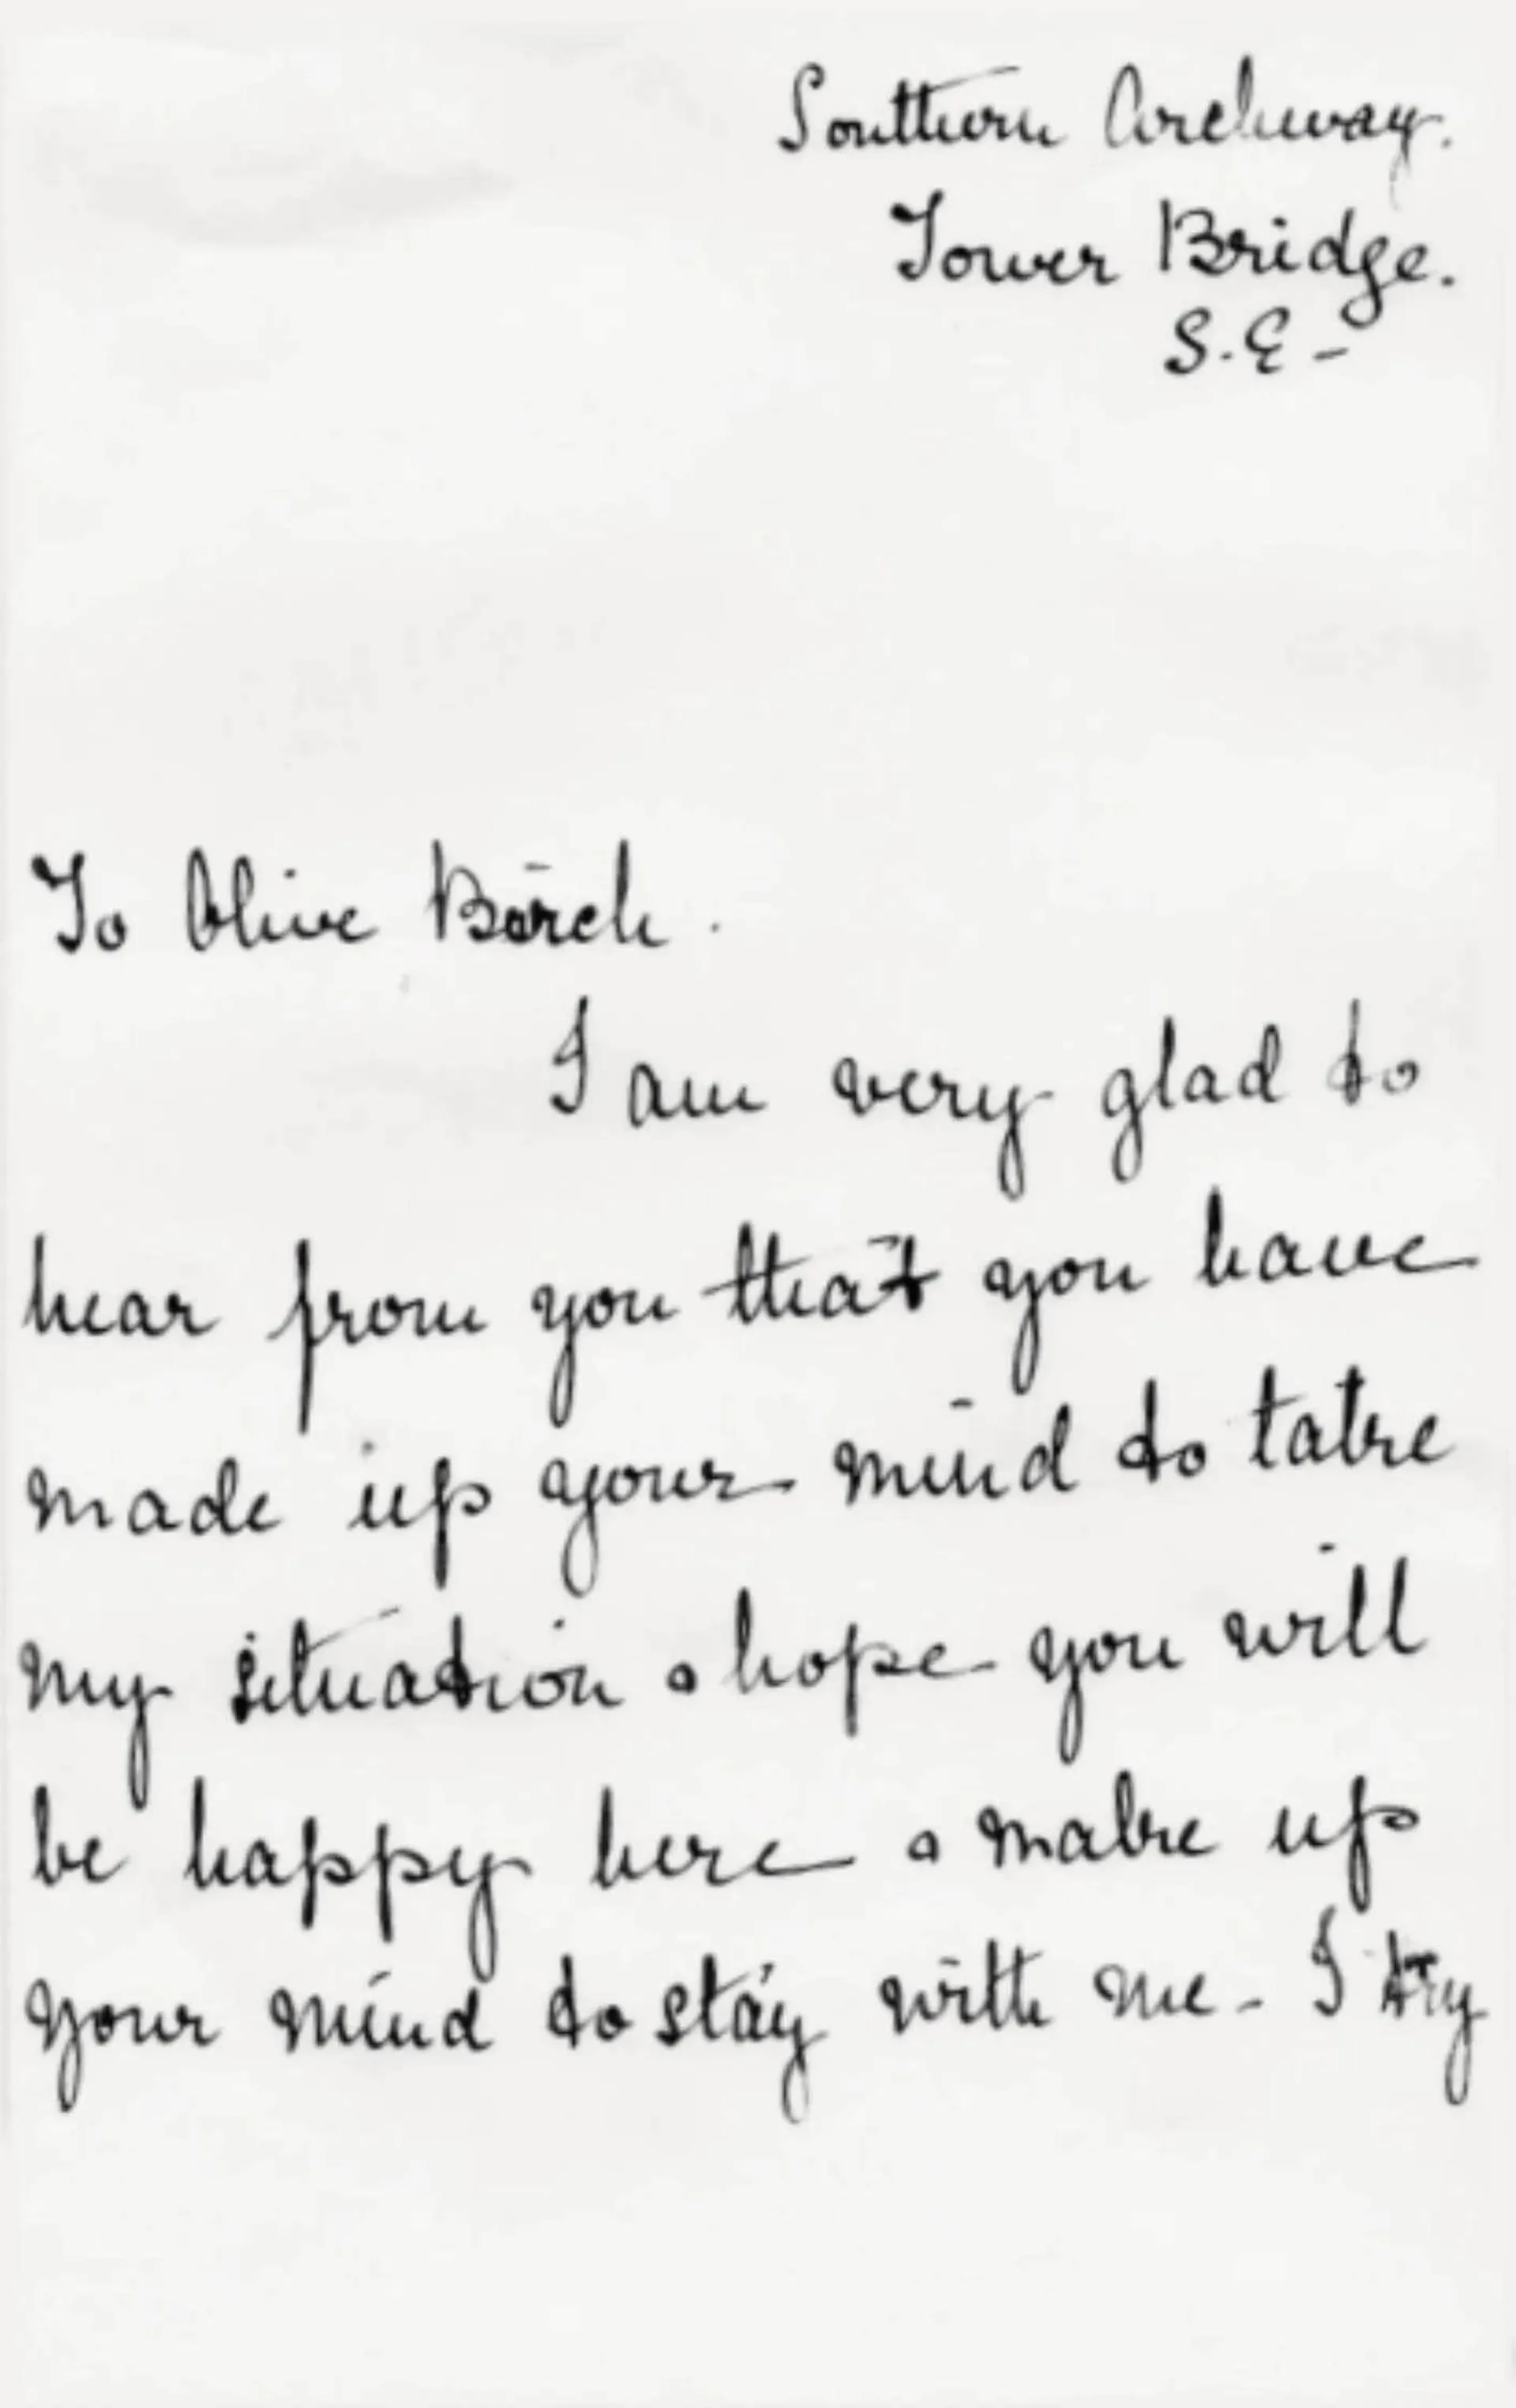 Southern Archway.
Tower Bridge.
S.E-
To Olive Birch.
I am very glad to
hear from you that you have
made up your mind to take
my situation & hope you will
be happy here & make up
your mind to stay with me - I try